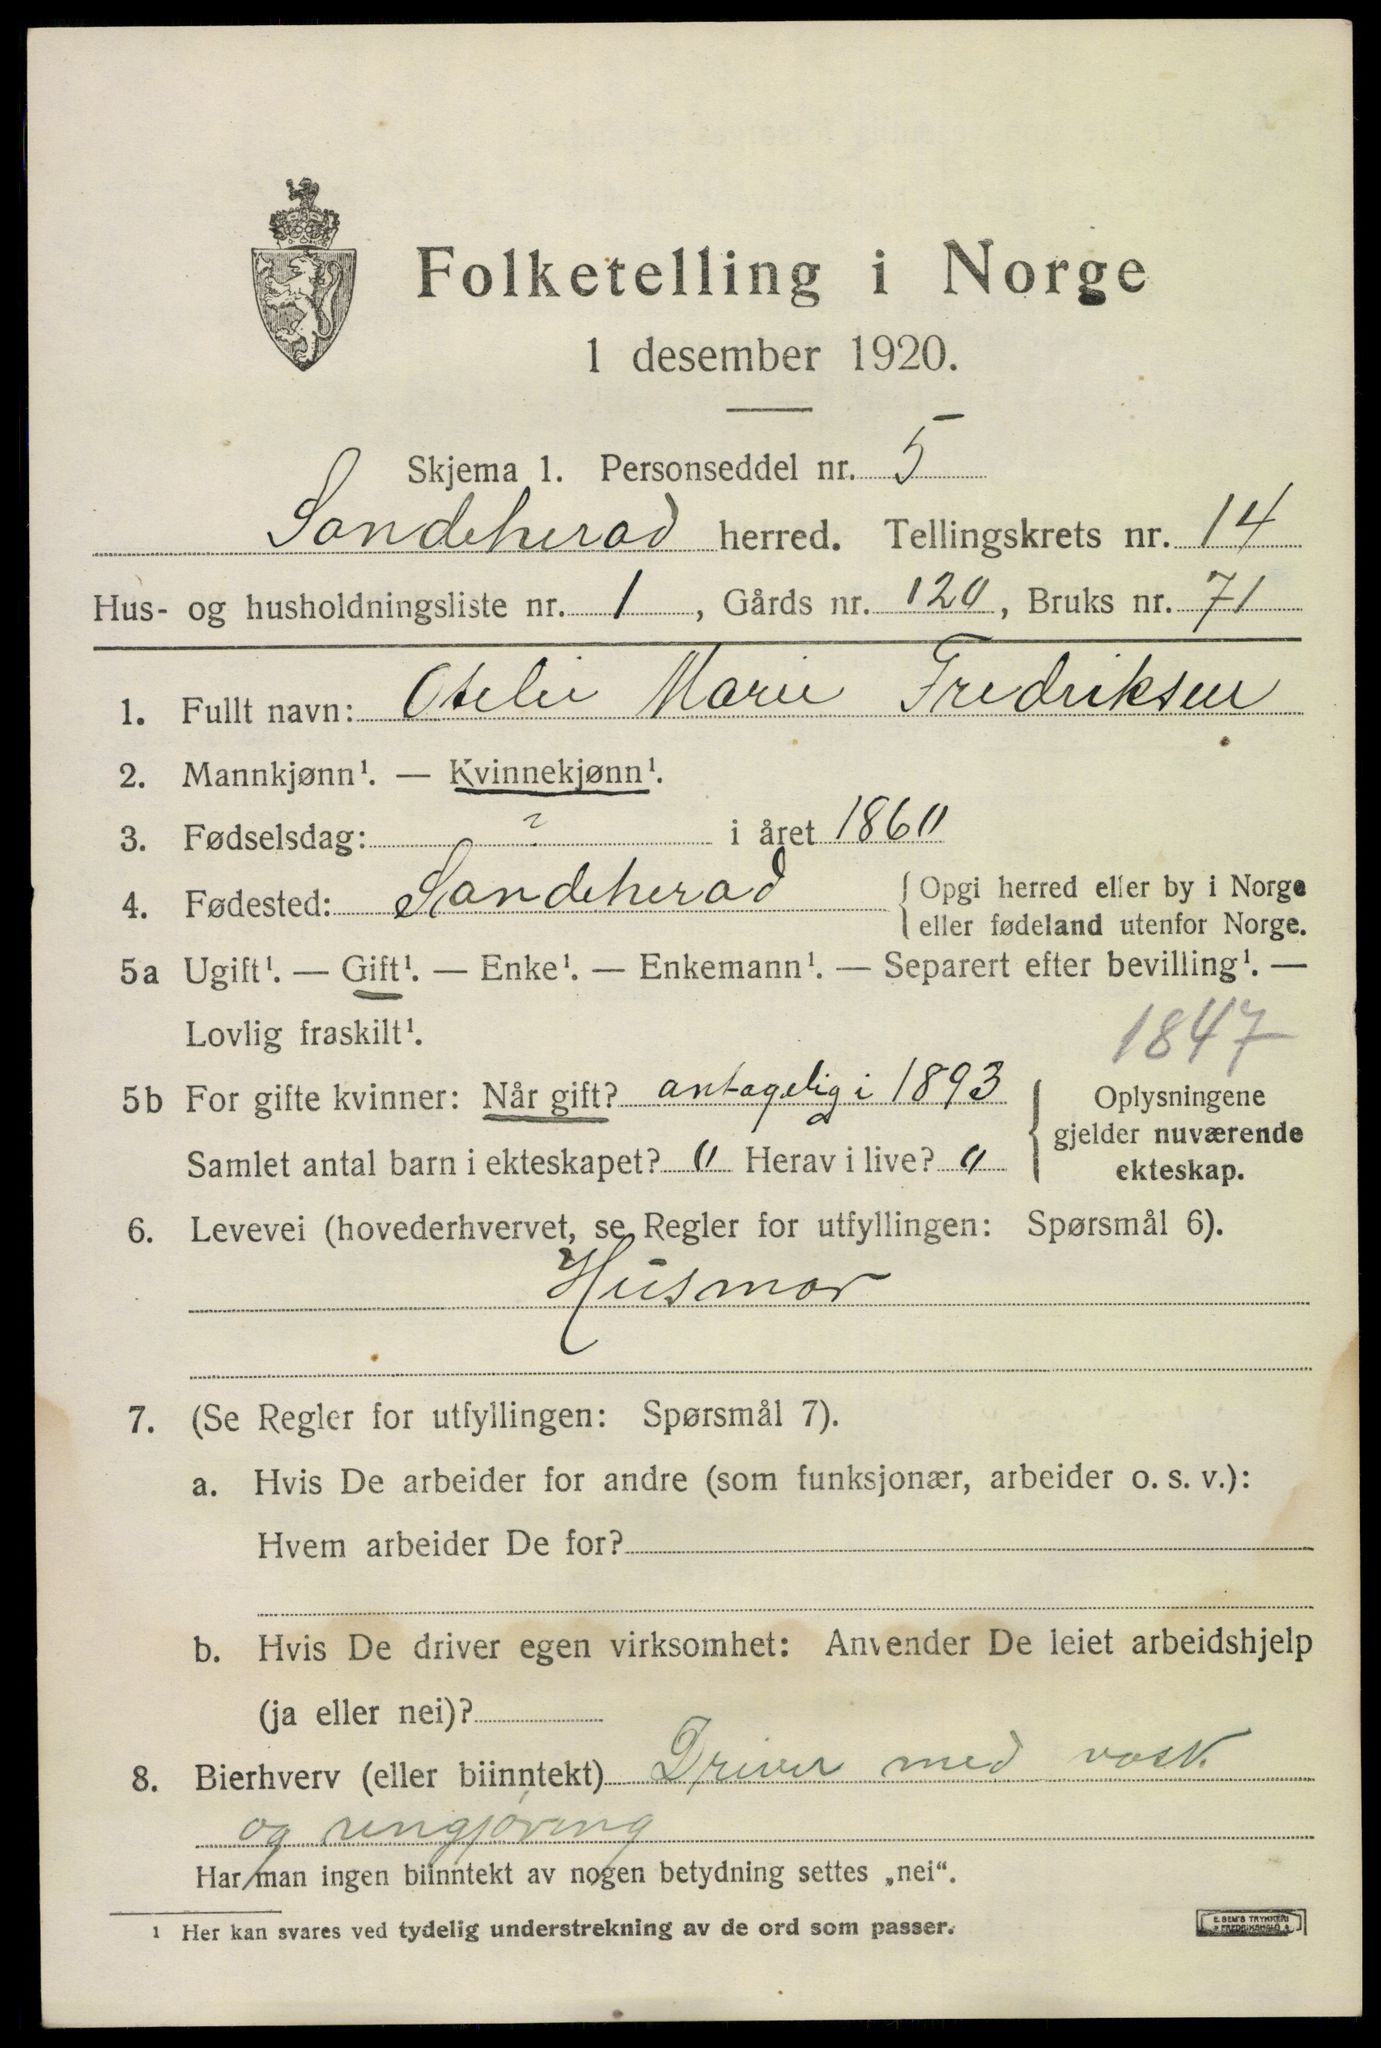 Folketelling i Norge
1 desember 1920.
Skjema 1. Personseddel nr. 5
Sandeherad herred. Tellingskrets nr. 14
Hus- og husholdningsliste nr. 1, Gårds nr. 120, Bruks nr. 71
1. Fullt navn: Otelie Marie Fredriksen
2. Mannkjønn¹. — Kvinnekjønn¹.
3. Fødselsdag: ? i året 1860
4. Fødested: Sandeherad { Opgi herred eller by i Norge
eller fødeland utenfor Norge.
5a Ugift¹. — Gift¹. — Enke¹. — Enkemann¹. — Separert efter bevilling¹. —
Lovlig fraskilt¹.
1847
5b For gifte kvinner: Når gift? antagelig i 1893
Samlet antal barn i ekteskapet? 0 Herav i live? 0
Oplysningene
gjelder nuværende
ekteskap.
6. Levevei (hovederhvervet, se Regler for utfyllingen: Spørsmål 6).
Husmor
7. (Se Regler for utfyllingen: Spørsmål 7).
a. Hvis De arbeider for andre (som funksjonær, arbeider o. s. v.):
Hvem arbeider De for?
b. Hvis De driver egen virksomhet: Anvender De leiet arbeidshjelp
(ja eller nei)?
8. Bierhverv (eller biinntekt) Driver med vask
og rengjøring
Har man ingen biinntekt av nogen betydning settes „nei“.
¹ Her kan svares ved tydelig understrekning av de ord som passer.
E. SEM'S TRYKKERI
FREDRIKSHALD